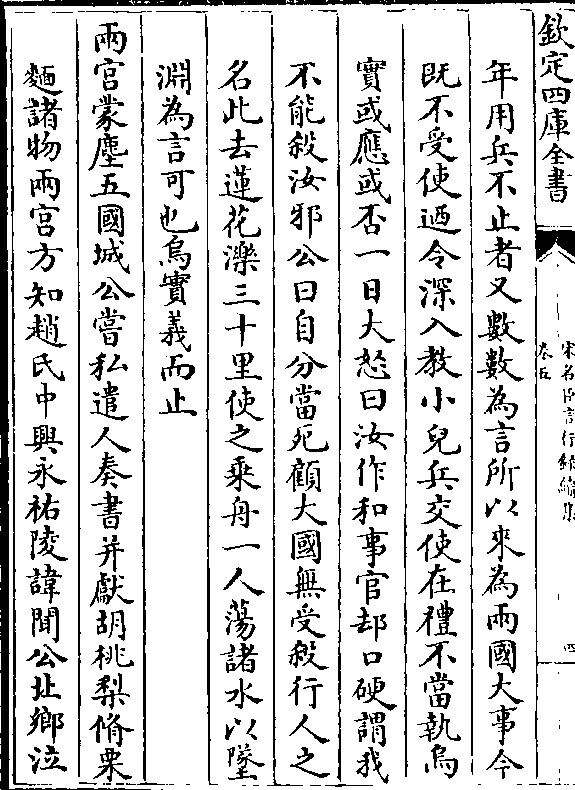 欽定四庫全書
宋名臣言行錄續集
卷五
四
年用兵不止者又數數為言所以來為兩國大事今
既不受使迺令深入教小兒兵交使在禮不當執烏
實或應或否一日大怒曰汝作和事官却口硬謂我
不能殺汝邪公曰自分當死顧大國無受殺行人之
名此去蓮花濼三十里使之乘舟一人蕩諸水以墜
淵為言可也烏實義而止
兩宮蒙塵五國城公嘗私遣人奏書并獻胡桃梨脩栗
麵諸物兩宮方知趙氏中興永祐陵諱聞公北鄉泣